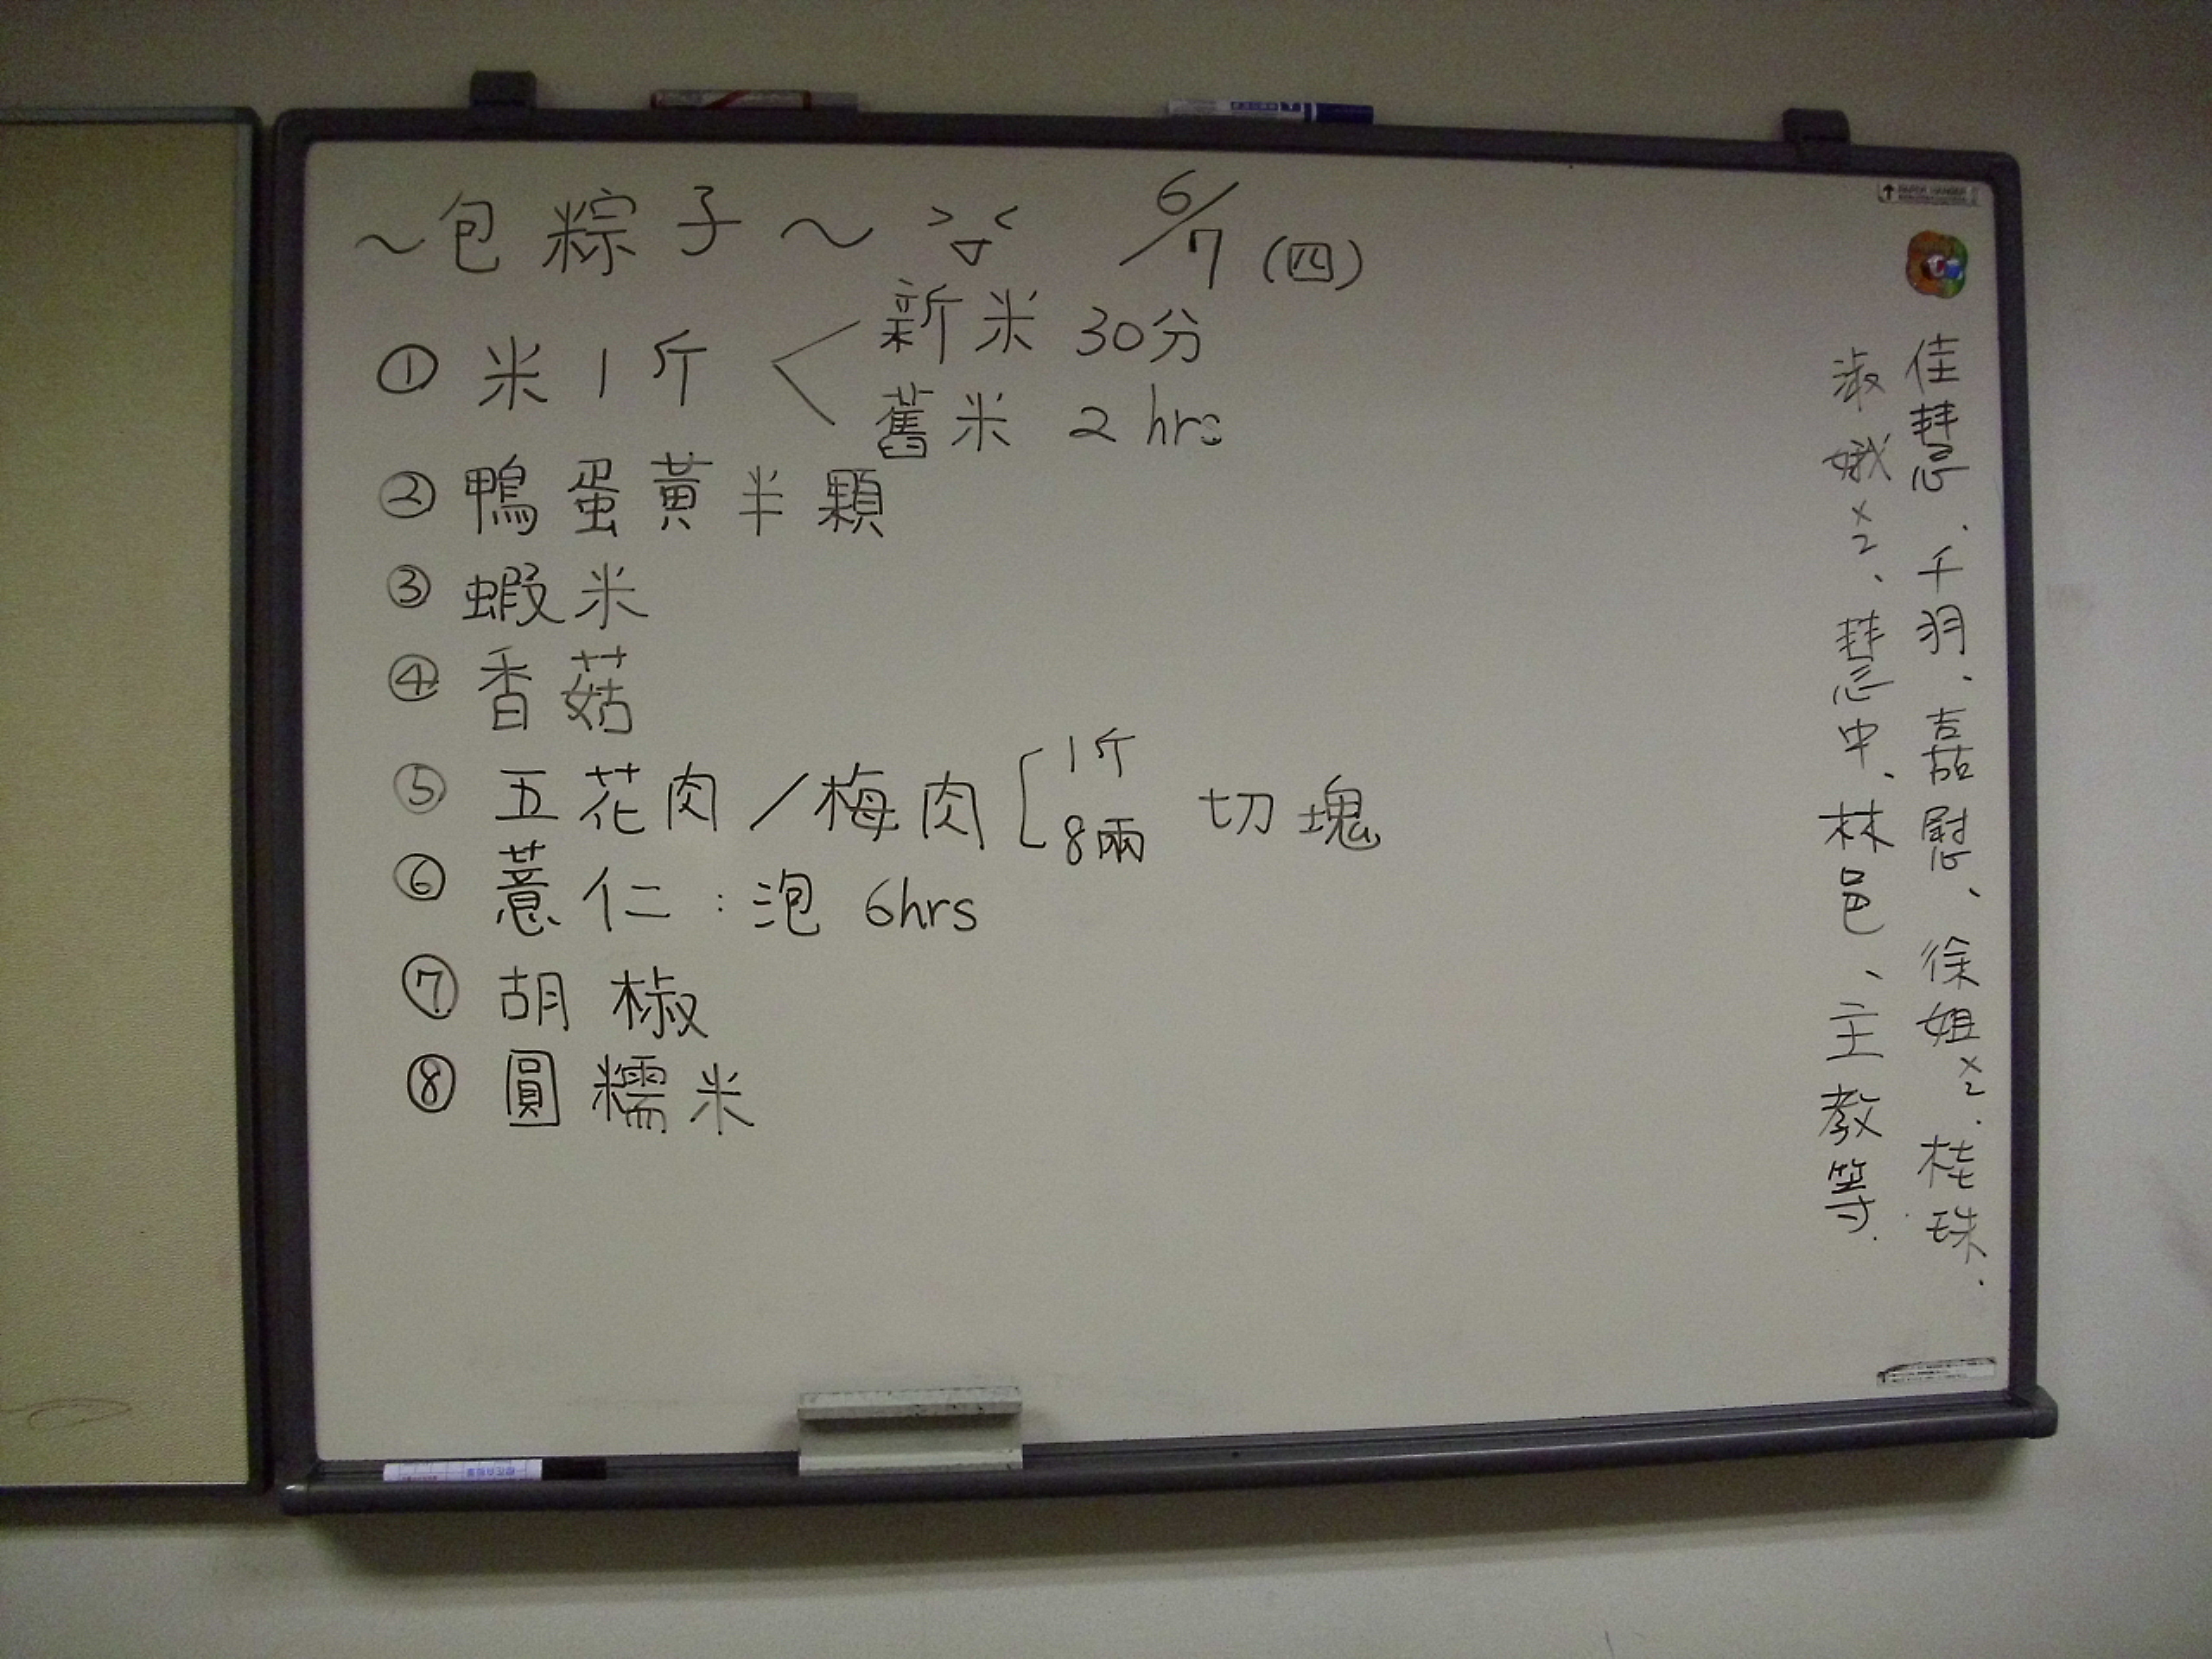 ~包粽子~ 6/7 (四)
① 米1斤 新米 30分
舊米 2 hrs
② 鴨蛋黃半顆
③ 蝦米
④ 香菇
⑤ 五花肉/梅肉 1斤 8兩 切塊
⑥ 薏仁:泡 6hrs
⑦ 胡椒
⑧ 圓糯米
佳慧、千羽、嘉慰、徐姐x2、桂珠、
淑娥x2、慧中、林邑、主教等.